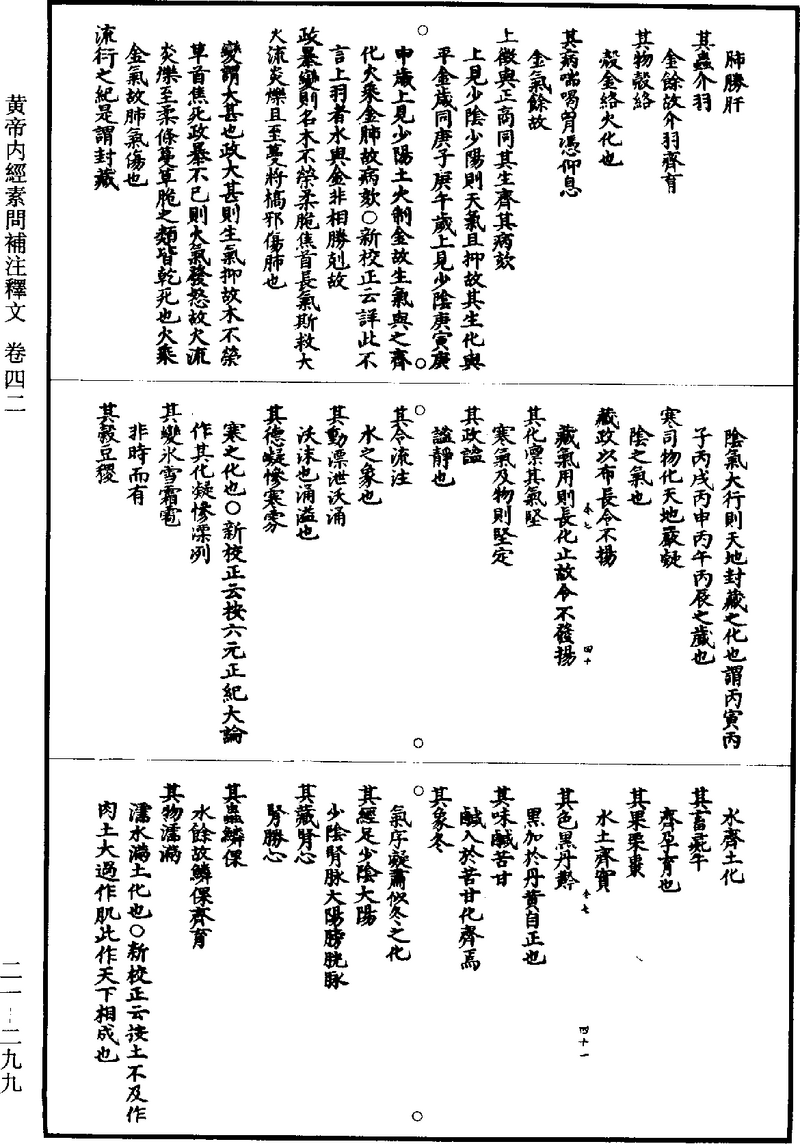 黃帝内經素問補注釋文　卷四二
二一—二九九
肺勝肝
其蟲介羽
金餘故介羽齊育
其物殼絡
殼金絡火化也
其病喘喝胷憑仰息
金氣餘故
上徵與正商同其生齊其病欬
上見少陰少陽則天氣且抑故其生化與
平金歲同庚子庚午歲上見少陰庚寅庚
申歲上見少陽土火制金故生氣與之齊
化火乘金肺故病欬○新校正云詳此不
言上羽者水與金非相勝剋故
政暴變則名木不榮柔脆焦首長氣斯救大
火流炎爍且至蔓將槁邪傷肺也
變謂大甚也政大甚則生氣抑故木不榮
草首焦死政暴不已則火氣發怒故火流
炎爍至柔條蔓草脆之類皆乾死也火乘
金氣故肺氣傷也
流衍之紀是謂封藏
陰氣大行則天地封藏之化也謂丙寅丙
子丙戌丙申丙午丙辰之歲也
寒司物化天地嚴凝
陰之氣也
藏政以布長令不揚
藏氣用則長化止故令不發揚
其化凛其氣堅
寒氣及物則堅定
其政謐
謐靜也
其令流注
水之象也
其動漂泄沃涌
沃沫也涌溢也
其德凝慘寒雰
寒之化也○新校正云按六元正紀大論
作其化凝慘凓冽
其變氷雪霜雹
非時而有
其穀豆稷
水齊土化
其畜彘牛
齊孕育也
其果栗棗
水土齊實
其色黑丹黅
黑加於丹黃自正也
其味鹹苦甘
鹹入於苦甘化齊焉
其象冬
氣序凝肅似冬之化
其經足少陰太陽
少陰腎脉大陽膀胱脉
其藏腎心
腎勝心
其蟲鱗倮
水餘故鱗倮齊育
其物濡滿
濡水滿土化也○新校正云按土不及作
肉土大過作肌此作天下相成也